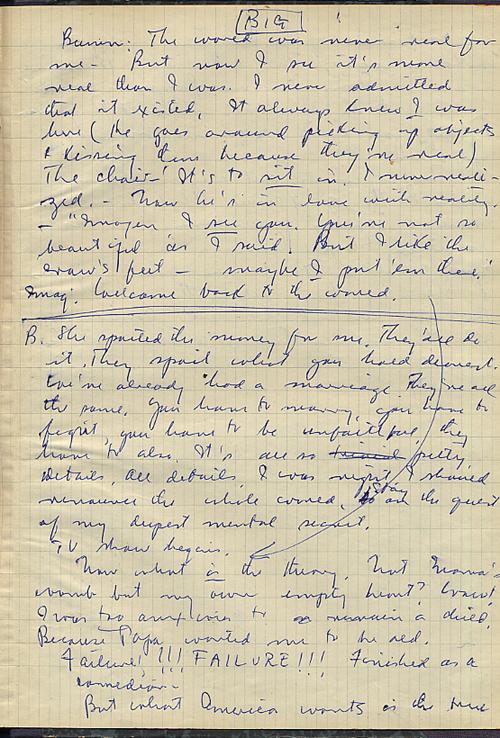 BIG
Bumm: The world was never real for
me - But now I see it's more
real than I was. I never admitted
that it existed, It always knew I was
here (He goes around picking up objects
& kissing them because they're real)
The chair! It's to sit in. I never reali-
zed. - Now he's in love with reality.
- "Imogen I see you. You're not so
beautiful as I said. But I like the
crow's feet - maybe I put 'em there."
Imag. Welcome back to the world.
B. She spoiled the money for me. They all do
it. They spoil what you hold dearest.
We've already had a marriage. They're all
the same. You have to marry, you have to
fight, you have to be unfaithful, they
have to also. It's all so petty
details, all details. I was right I should
renounce the whole world, stay on the quest
of my deepest mental secret.
TV show begins.
Now what is the theory. Not Mama's
womb but my own empty heart?
I was too anxious to remain a child.
Because Papa wanted me to be old.
Failure! !!! FAILURE!!! Finished as a
comedian -
But what America wants is the true